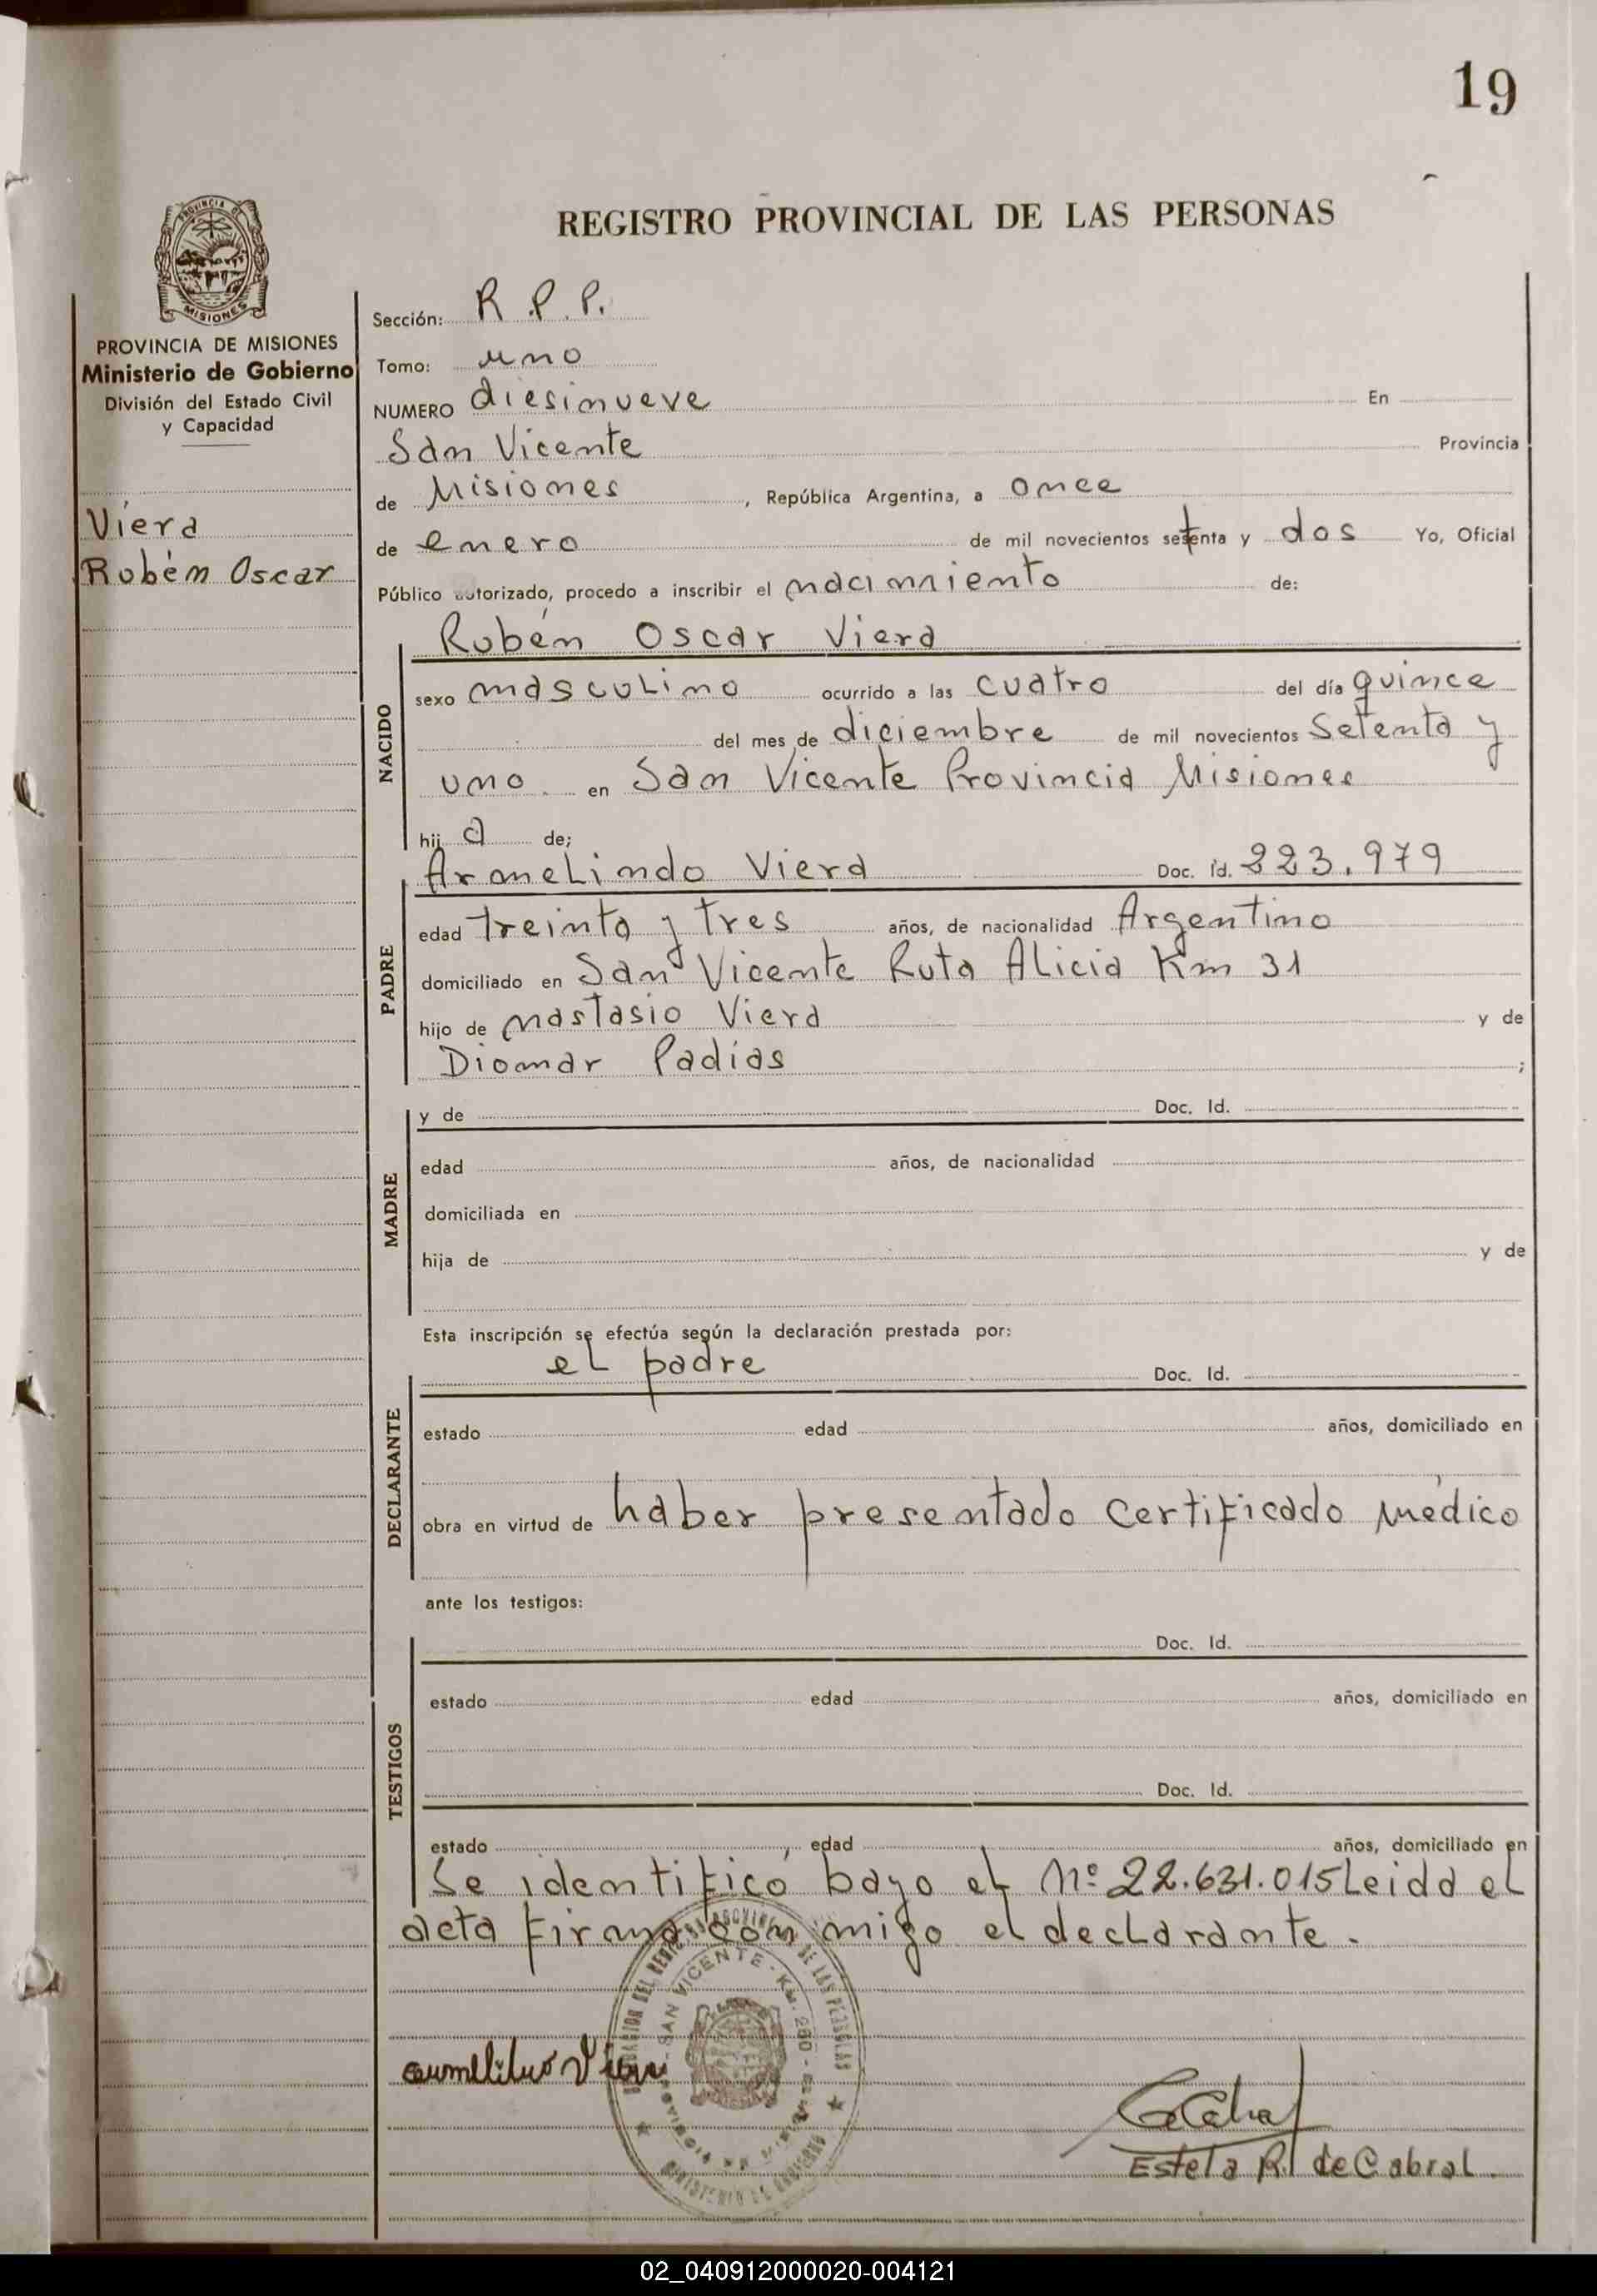 19
REGISTRO PROVINCIAL DE LAS PERSONAS
PROVINCIA DE
MISIONES
PROVINCIA DE MISIONES
Ministerio de Gobierno
División del Estado Civil
y Capacidad
Viera
Rubén Oscar
Sección: R.P.P.
Tomo: uno
NUMERO diesinueve En
San Vicente Provincia
de Misiones, República Argentina, a once
de enero de mil novecientos setenta y dos Yo, Oficial
Público autorizado, procedo a inscribir el nacimiento de:
NACIDO
Rubén Oscar Viera
sexo masculino ocurrido a las cuatro del día quince
del mes de diciembre de mil novecientos setenta y
uno. en San Vicente Provincia Misiones
hij o de;
PADRE
Armelindo Viera Doc. Id. 223.979
edad treinta y tres años, de nacionalidad Argentino
domiciliado en San Vicente Ruta Alicia Km 31
hijo de nastasio Viera y de
Diomar Padias ;
MADRE
y de Doc. Id.
edad años, de nacionalidad
domiciliada en
hija de y de
Esta inscripción se efectúa según la declaración prestada por:
DECLARANTE
el padre Doc. Id.
estado edad años, domiciliado en
obra en virtud de haber presentado certificado médico
ante los testigos:
TESTIGOS
Doc. Id.
estado edad años, domiciliado en
Doc. Id.
estado edad años, domiciliado en
Se identificó bayo el Nº 22.631.015 Leida el
acta firma con migo el declarante.
SAN VICENTE - KM. 260
MINISTERIO DE GOBIERNO
Viera
Estela R. de Cabral.
02_040912000020-004121